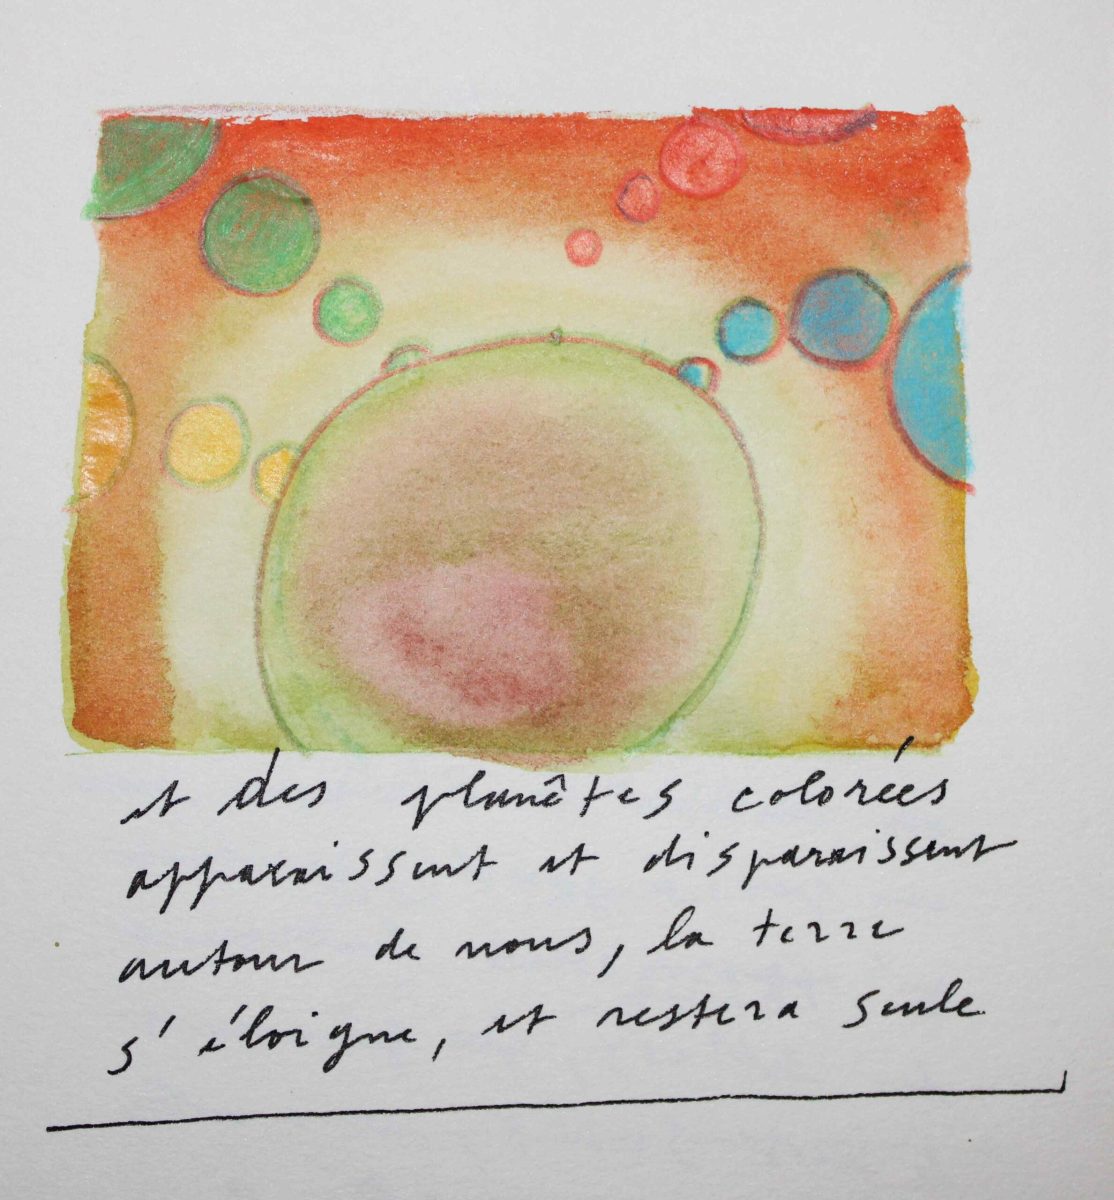 et des planêtes colorées
apparaissent et disparaissent
autour de nous, la terre
s'éloigne, et restera seule